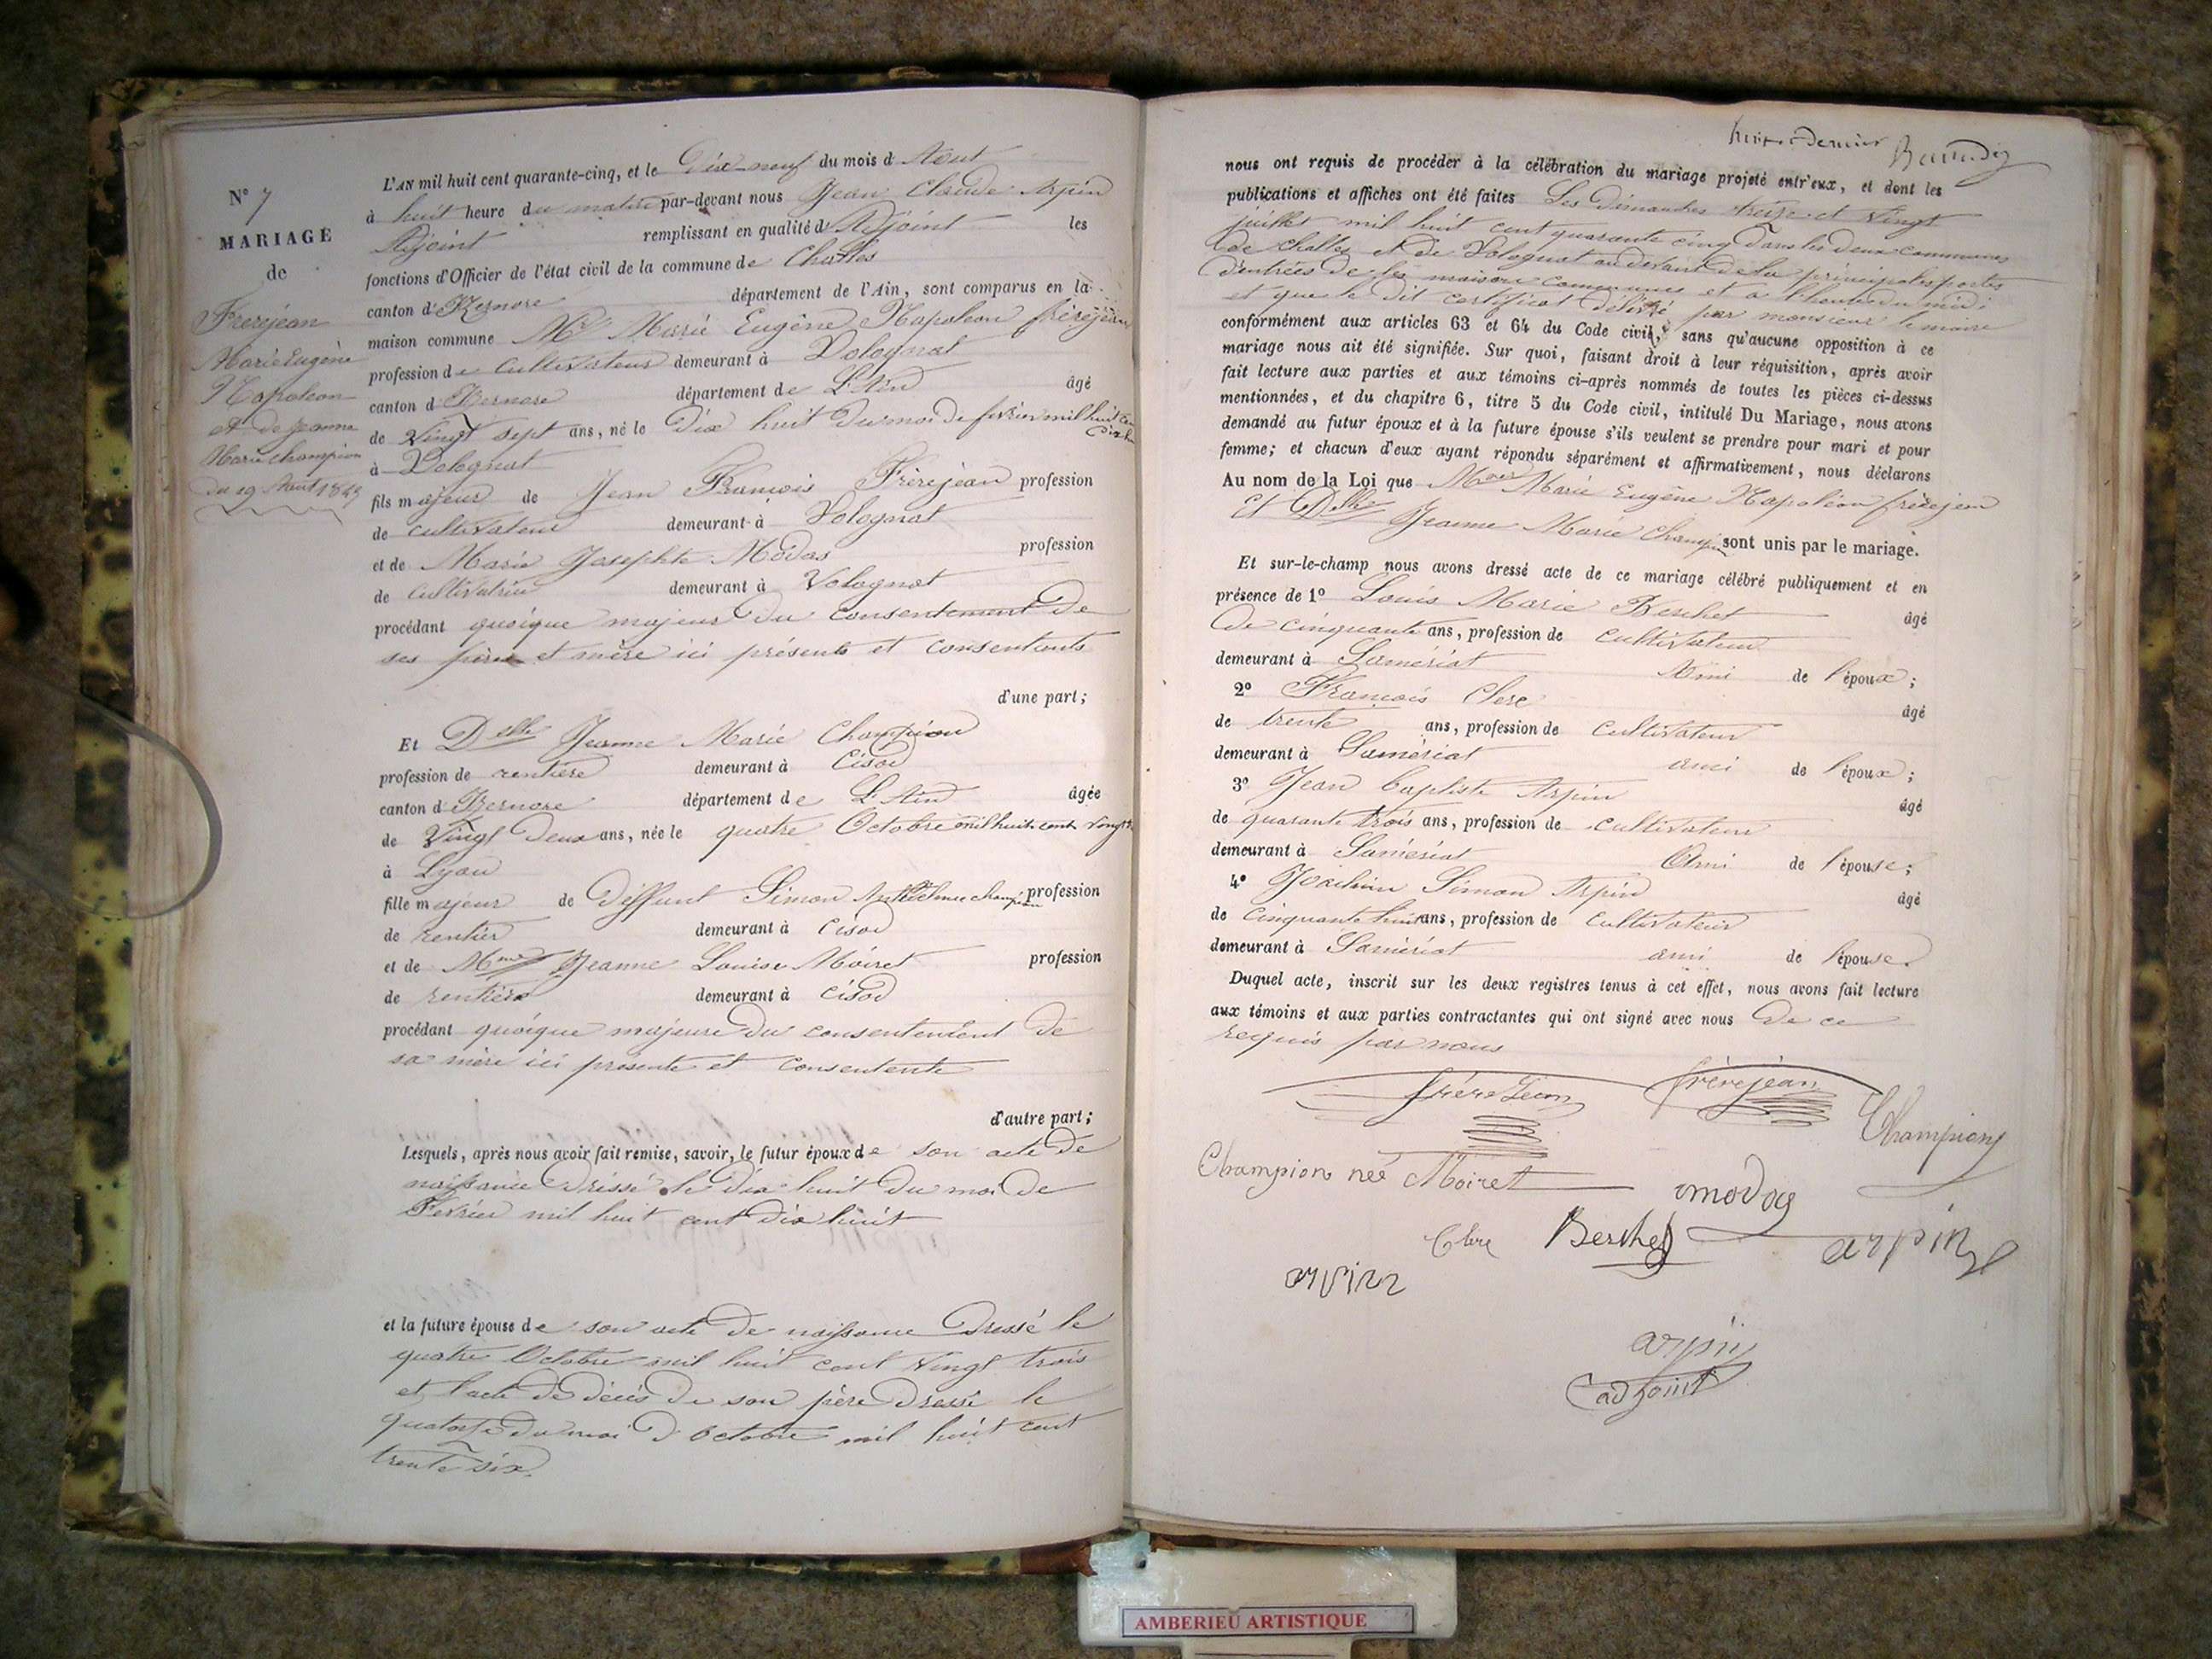 N° 7
MARIAGE
de
Frerejean
Marie Eugène
Napoleon
et de Jeanne
Marie Champion
du 19 Aout 1845
L'AN mil huit cent quarante-cinq, et le Dix-neuf du mois d Aout
à huit heure du matin par-devant nous Jean Claude Arpin
Adjoint remplissant en qualité d'Adjoint les
fonctions d'Officier de l'état civil de la commune de Challes
canton d Izernore département de l'Ain, sont comparus en la
maison commune Mr Marie Eugène Napoleon frérejean
profession de Cultivateur demeurant à Volognat
canton d Izernore département de L'Ain âgé
de Vingt sept ans, né le Dix huit du moi de fevrier mil huit cent
à Volognat
fils majeur de Jean François Frérejean profession
de cultivateur demeurant à Volognat
et de Marie Josephte Modas profession
de Cultivatrice demeurant à Volognat
procédant quoique majeur du Consentement de
ses père et mère ici présents et consentents
d'une part;
Et Delle Jeanne Marie Champion
profession de rentière demeurant à Cisod
canton d Izernore département de L'Ain âgée
de Vingt Deux ans, née le quatre Octobre mil huit cent Vingt
à Lyon
fille majeur de Deffunt Simon Anthelme champion profession
de rentier demeurant à Cisod
et de Mme Jeanne Louise Moiret profession
de rentière demeurant à Cisod
procédant quoique majeure du consentement de
sa mère ici présente et Consentente
d'autre part;
Lesquels, après nous avoir fait remise, savoir, le futur époux de son acte de
naissance dréssé le dix huit du moi de
Fevrier mil huit cent dix huit
et la future épouse de son acte de naissance Dressé le
quatre Octobre mil huit cent Vingt trois
et l'acte de décès de son père dressé le
quatorse du moi d'Octobre mil huit cent
trente six.
nous ont requis de procéder à la célébration du mariage projeté entr'eux, et dont les
publications et affiches ont été faites Les Dimanches treize et Vingt
juillet mil huit cent quarante cinq dans les deux communes
de Challes et de Volognat au devant de la principales portes
d'entrées de les maison communes et a l'heure du midi
et que le dit certificat délivré par monsieur le maire
conformément aux articles 63 et 64 du Code civil, sans qu'aucune opposition à ce
mariage nous ait été signifiée. Sur quoi, faisant droit à leur réquisition, après avoir
fait lecture aux parties et aux témoins ci-après nommés de toutes les pièces ci-dessus
mentionnées, et du chapitre 6, titre 5 du Code civil, intitulé Du Mariage, nous avons
demandé au futur époux et à la future épouse s'ils veulent se prendre pour mari et pour
femme; et chacun d'eux ayant répondu séparément et affirmativement, nous déclarons
Au nom de la Loi que Marie Eugène Napoléon frérejean
Et Delle Jeanne Marie Champion sont unis par le mariage.
Et sur-le-champ nous avons dressé acte de ce mariage célébré publiquement et en
présence de 1° Louis Marie Berchet âgé
de cinquante ans, profession de cultivateur
demeurant à Samériat Ami de l'époux;
2° François Clerc âgé
de trente ans, profession de cultivateur
demeurant à Samériat ami de l'époux;
3° Jean Baptiste Arpin âgé
de quarante trois ans, profession de cultivateur
demeurant à Samériat Ami de l'épouse;
4° Joachim Simon Arpin âgé
de Cinquante huit ans, profession de cultivateur
demeurant à Samériat ami de l'épouse.
Duquel acte, inscrit sur les deux registres tenus à cet effet, nous avons fait lecture
aux témoins et aux parties contractantes qui ont signé avec nous De ce
requis par nous
frére Jean frèrejean
Champion
Champion neé Moiret modas
Clerc Berchet arpin
arpin
arpin
adjoint
AMBERIEU ARTISTIQUE